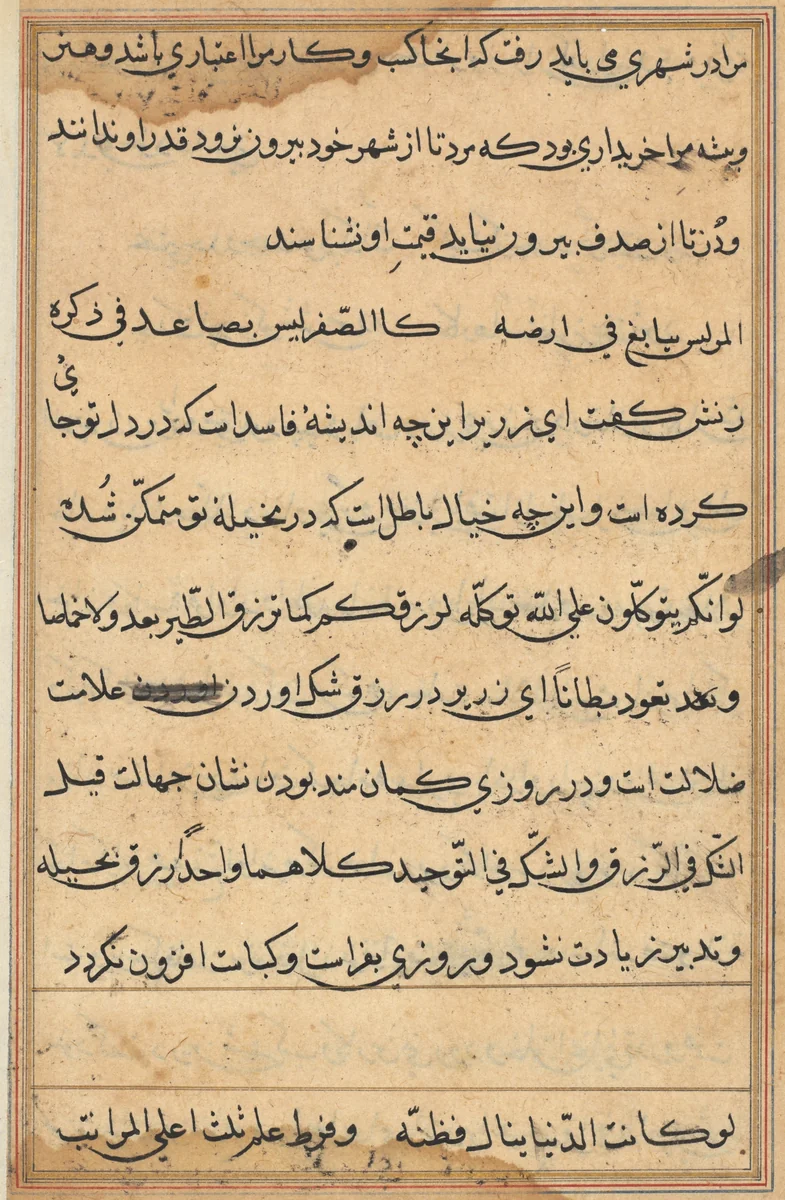 مرا در شهري مي بايد رفت که انجا کسب و کار مرا اعتباري باشد و هنر
و پيشه مرا خريداري بود که مرد تا از شهر خود بيرون نرود قدر او ندانند
و دُر تا از صدف بيرون نيايد قيمتِ او نشناسند
المر ليس ببابغ في ارضه کا الصّفر ليس بصاعد في ذکره
زنش کفت اي زرير اين چه انديشهٔ فاسد است که در دل تو جا
يُ
کرده است و اين چه خيال باطل است که در مخيلهٔ تو متمکّن شُده
لو انّکم يتوکّلون علي اللّه توکله لو رزقکم کما ترزق الطّير بعد ولا خماصا
و تعود بطاناً اي زرير در رزق شک اوردن علامت
ضلالت است و در روزي کمان مند بودن نشان جهالت قيل
الشّک في الرّزق و الشّک في التّوحيد کلاهما واحدٌ رزق بحيله
و تدبير زيادت نشود و روزي بفراست و کياست افزون نکردد
لو کانت الدّنيا ينال فظنّه و فرط علم ثلث اعلي المراتب